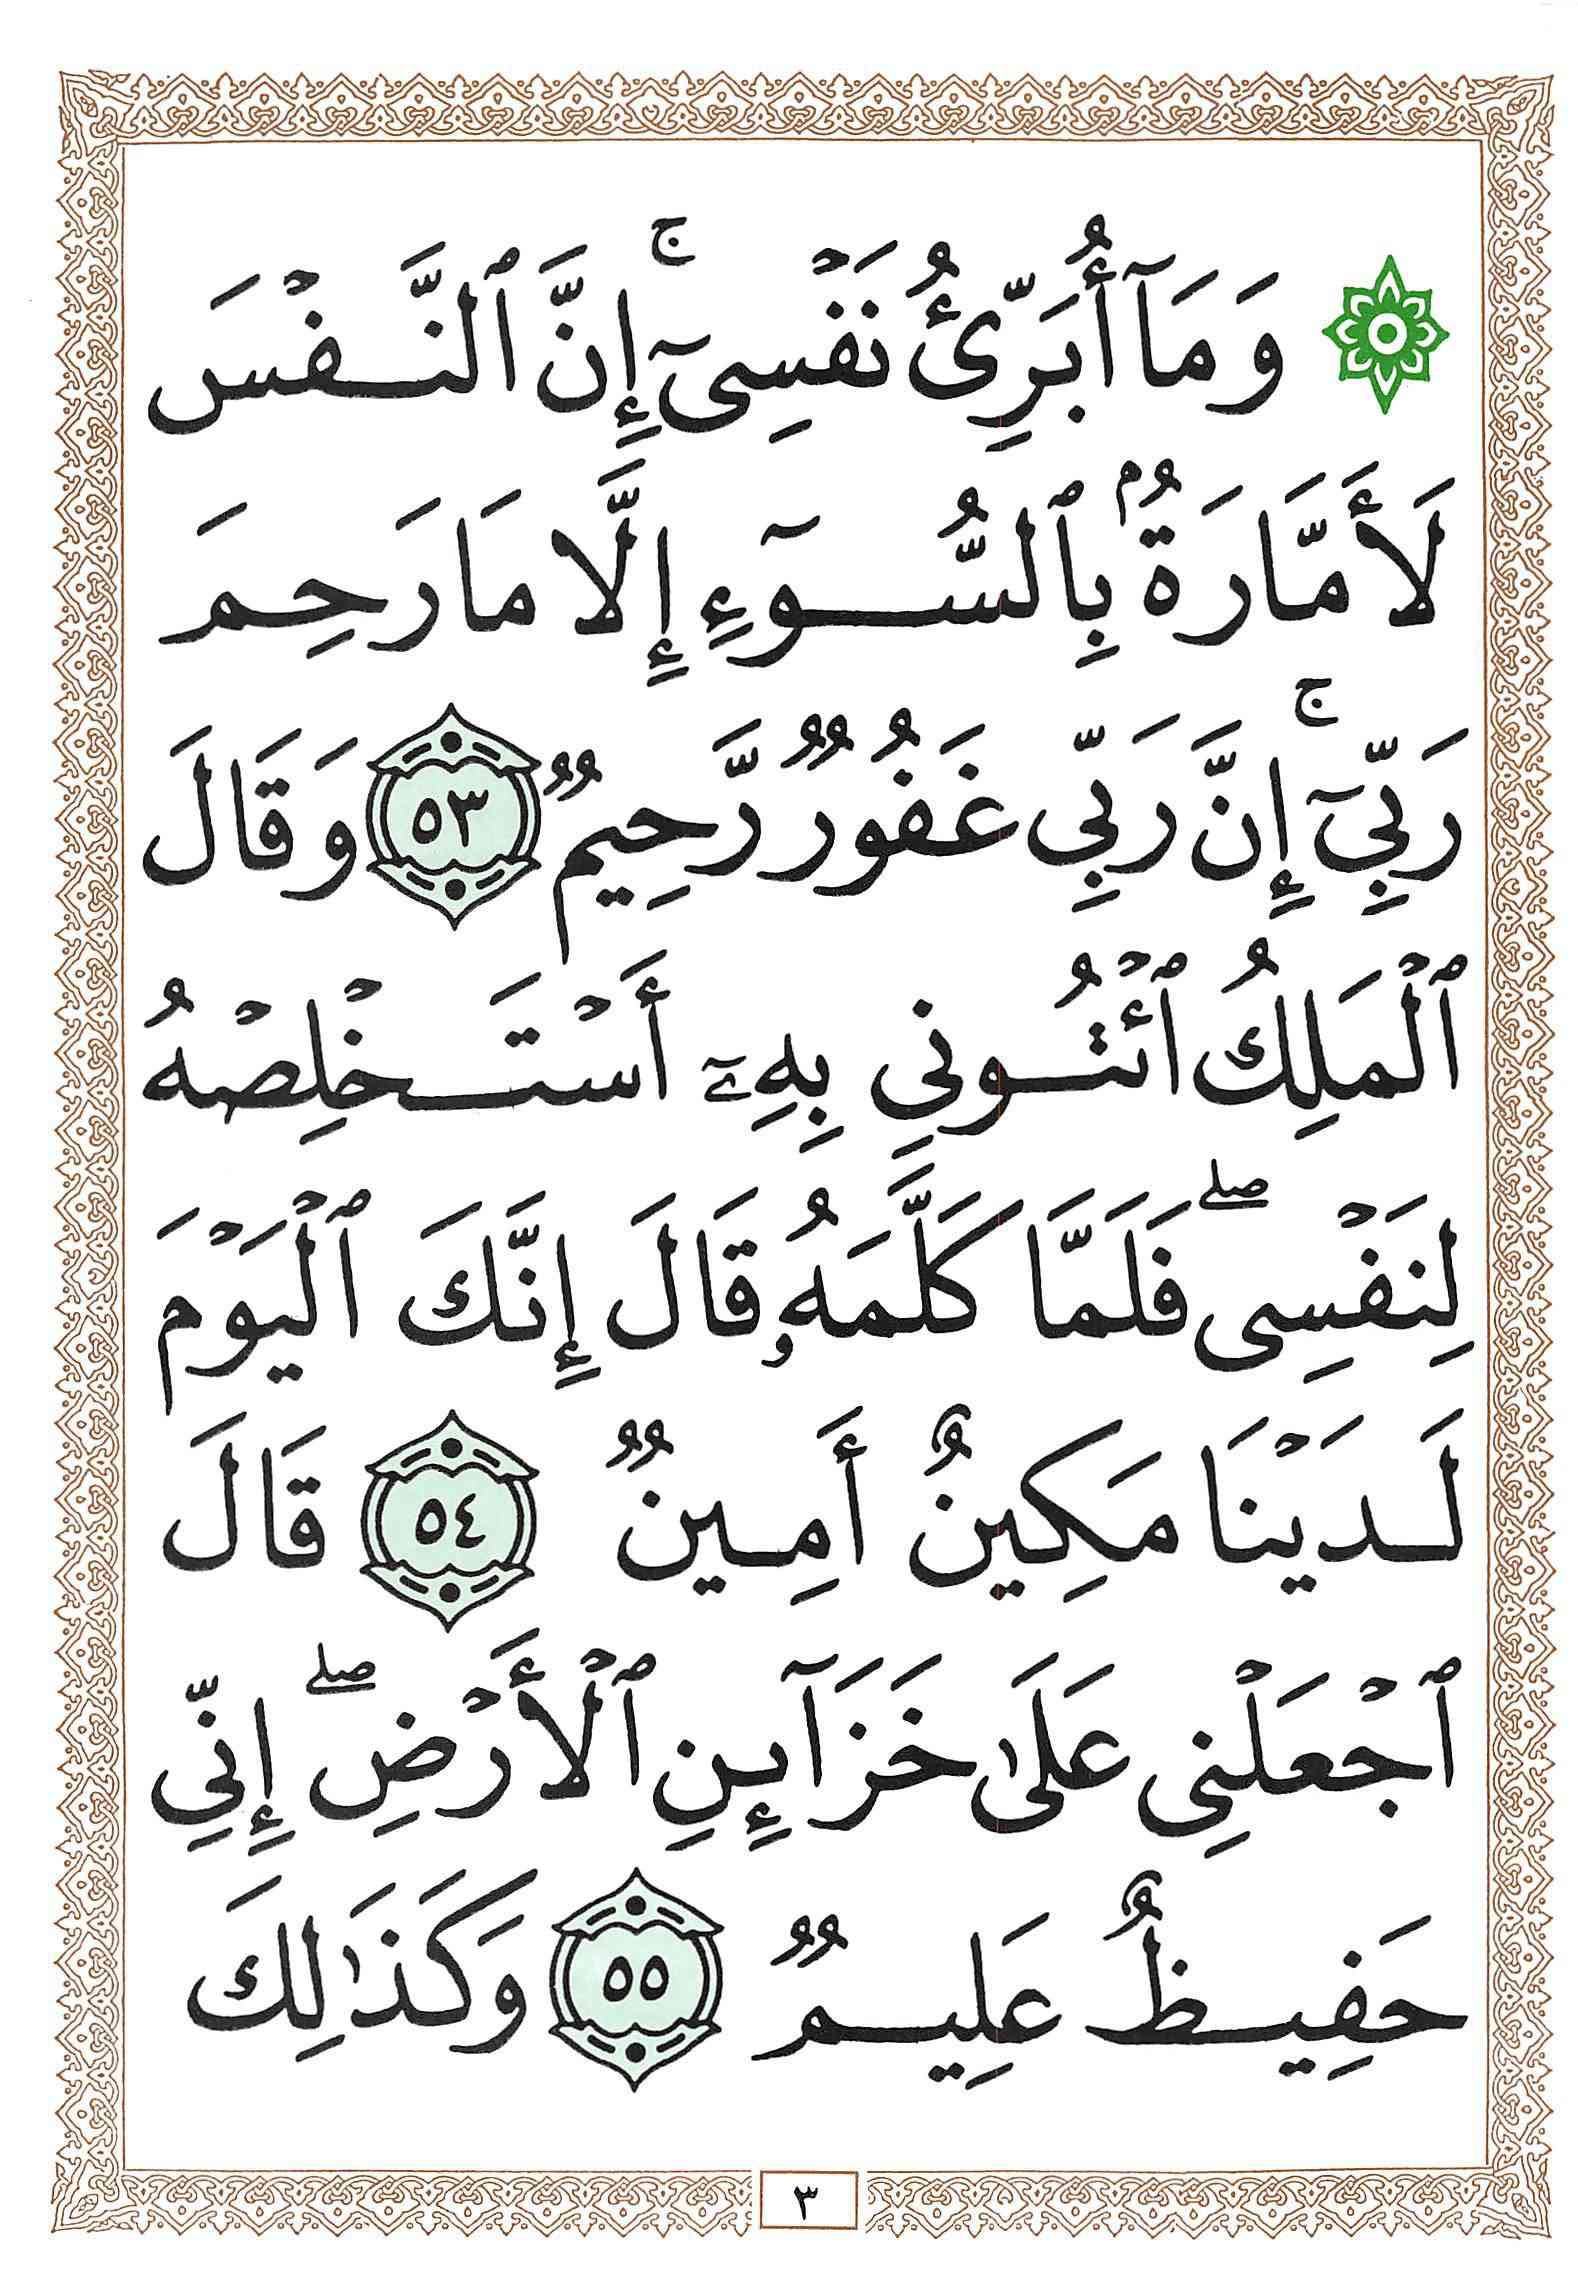 ۞ وَمَآ أُبَرِّئُ نَفْسِىٓ ۚ إِنَّ ٱلنَّفْسَ
لَأَمَّارَةٌۢ بِٱلسُّوٓءِ إِلَّا مَا رَحِمَ
رَبِّىٓ ۚ إِنَّ رَبِّى غَفُورٌ رَّحِيمٌ ٥٣ وَقَالَ
ٱلْمَلِكُ ٱئْتُونِى بِهِۦٓ أَسْتَخْلِصْهُ
لِنَفْسِى ۖ فَلَمَّا كَلَّمَهُۥ قَالَ إِنَّكَ ٱلْيَوْمَ
لَدَيْنَا مَكِينٌ أَمِينٌ ٥٤ قَالَ
ٱجْعَلْنِى عَلَىٰ خَزَآئِنِ ٱلْأَرْضِ ۖ إِنِّى
حَفِيظٌ عَلِيمٌ ٥٥ وَكَذَٰلِكَ
٣